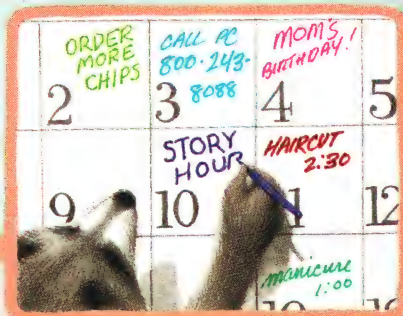 ORDER
MORE
CHIPS
2
CALL PC
800·243·
8088
3
MOM'S
BIRTHDAY!
4
5
9
STORY
HOUR
10
HAIRCUT
2:30
1
12
manicure
1:00